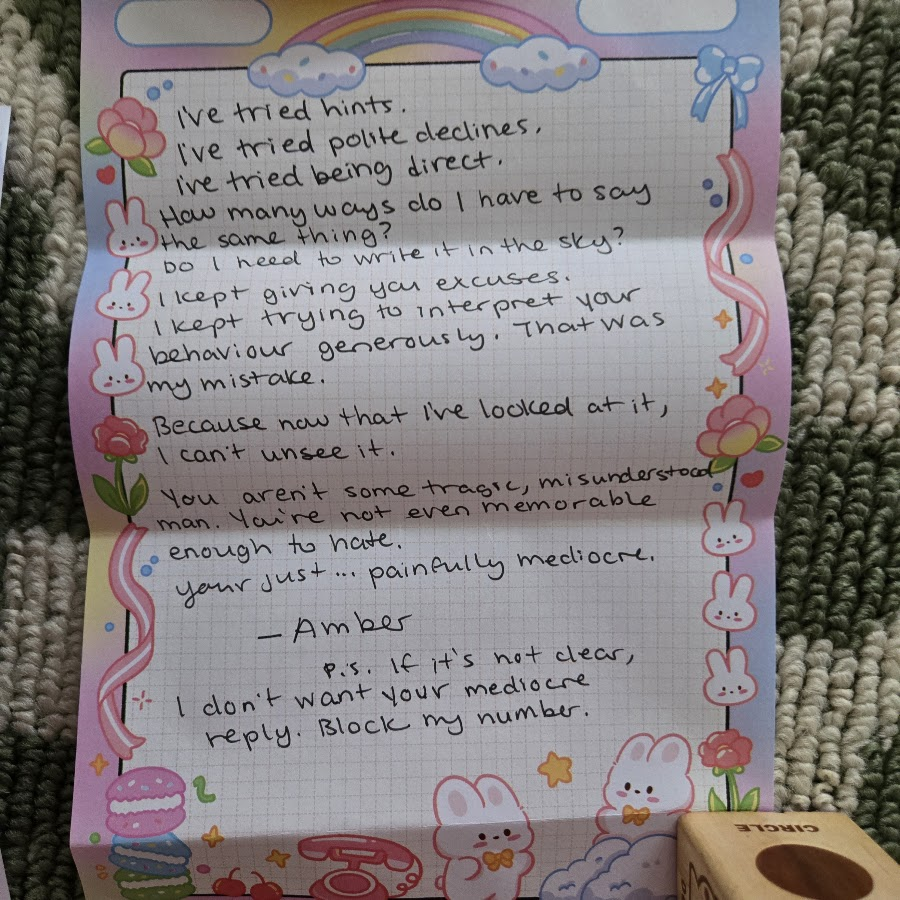 I've tried hints.
I've tried polite declines.
ive tried being direct.
How many ways do I have to say
the same thing?
Do I need to write it in the sky?
I kept giving you excuses.
I kept trying to interpret your
behaviour generously. That was
my mistake.
Because now that I've looked at it,
I can't unsee it.
You aren't some tragic, misunderstood
man. You're not even memorable
enough to hate.
your just... painfully mediocre.
— Amber
p.s. If it's not clear,
I don't want your mediocre
reply. Block my number.
CIRCLE